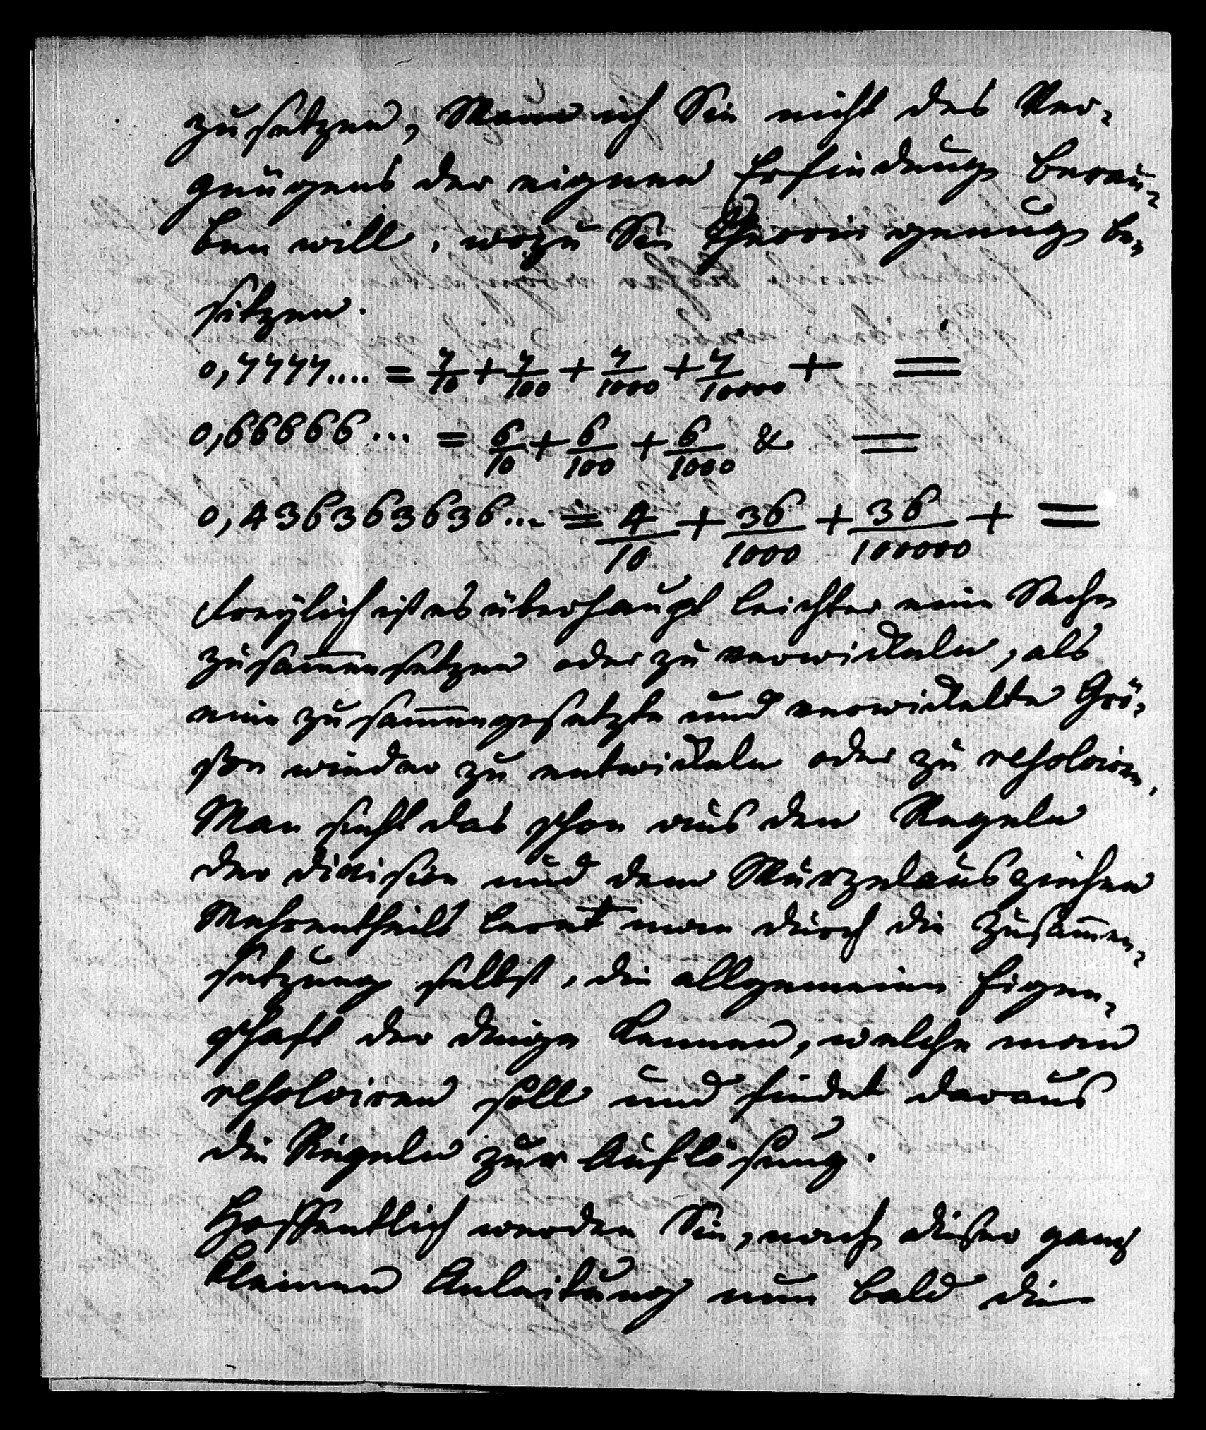 zusetzen, Wann ich Sie nicht des Ver-
gnügens der eignen Erfindung berau-
ben will, wozu Sie Theorie genug be-
sitzen.
0,7777.... = 7/10 + 7/100 + 7/1000 + 7/10000 + =
0,66666... = 6/10 + 6/100 + 6/1000 & =
0,436363636... = 4/10 + 36/1000 + 36/100000 + =
Freylich ist es überhaupt leichter eine Sache
zusam̅ensetzen oder zu verwickeln, als
eine zusam̅engesetzte und verwickelte Grö-
ßen wieder zu entwickeln oder zu resolviren.
Man sieht das schon aus den Regeln
der Division und dem Wurzelausziehen
Mehrentheils lernt man durch die Zusam̅en-
setzung selbst, die allgemeinen Eigen-
schaft der Dinge kennen, welche man
resolviren soll und findet daraus
die Regeln zur Auflösung.
Hoffentlich werden Sie, nach dieser ganz
kleinen Anleitung nun bald die